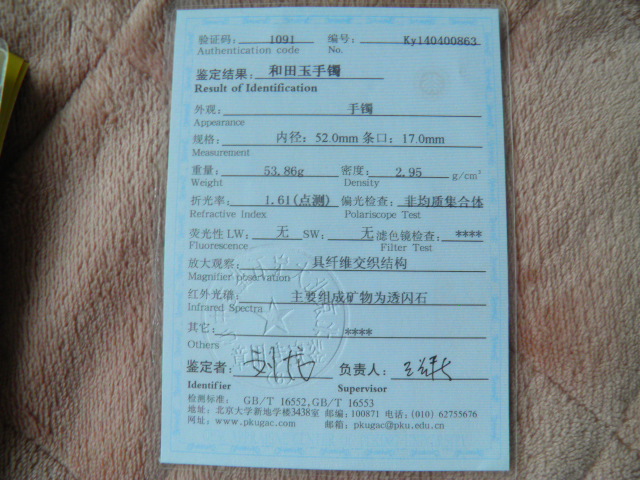 验证码： 1091 编号： Ky140400863
Authentication code No.
鉴定结果： 和田玉手镯
Result of Identification
外观： 手镯
Appearance
规格： 内径：52.0mm 条口：17.0mm
Measurement
重量： 53.86g 密度： 2.95 g/cm³
Weight Density
折光率： 1.61(点测) 偏光检查： 非均质集合体
Refractive Index Polariscope Test
荧光性 LW： 无 SW： 无 滤色镜检查： ****
Fluorescence Filter Test
放大观察： 具纤维交织结构
Magnifier observation
红外光谱： 主要组成矿物为透闪石
Infrared Spectra
其它： ****
Others
鉴定者： 负责人：
Identifier Supervisor
检测标准： GB/T 16552,GB/T 16553
地址：北京大学新地学楼3438室 邮编：100871 电话：(010) 62755676
网址：www.pkugac.com 邮箱：pkugac@pku.edu.cn